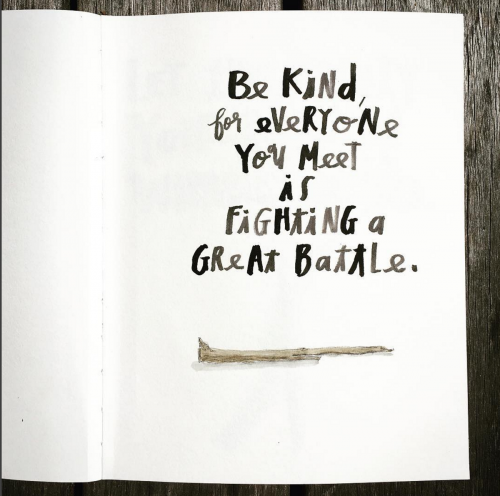 Be Kind,
for everyone
You Meet
is
Fighting a
Great Battle.